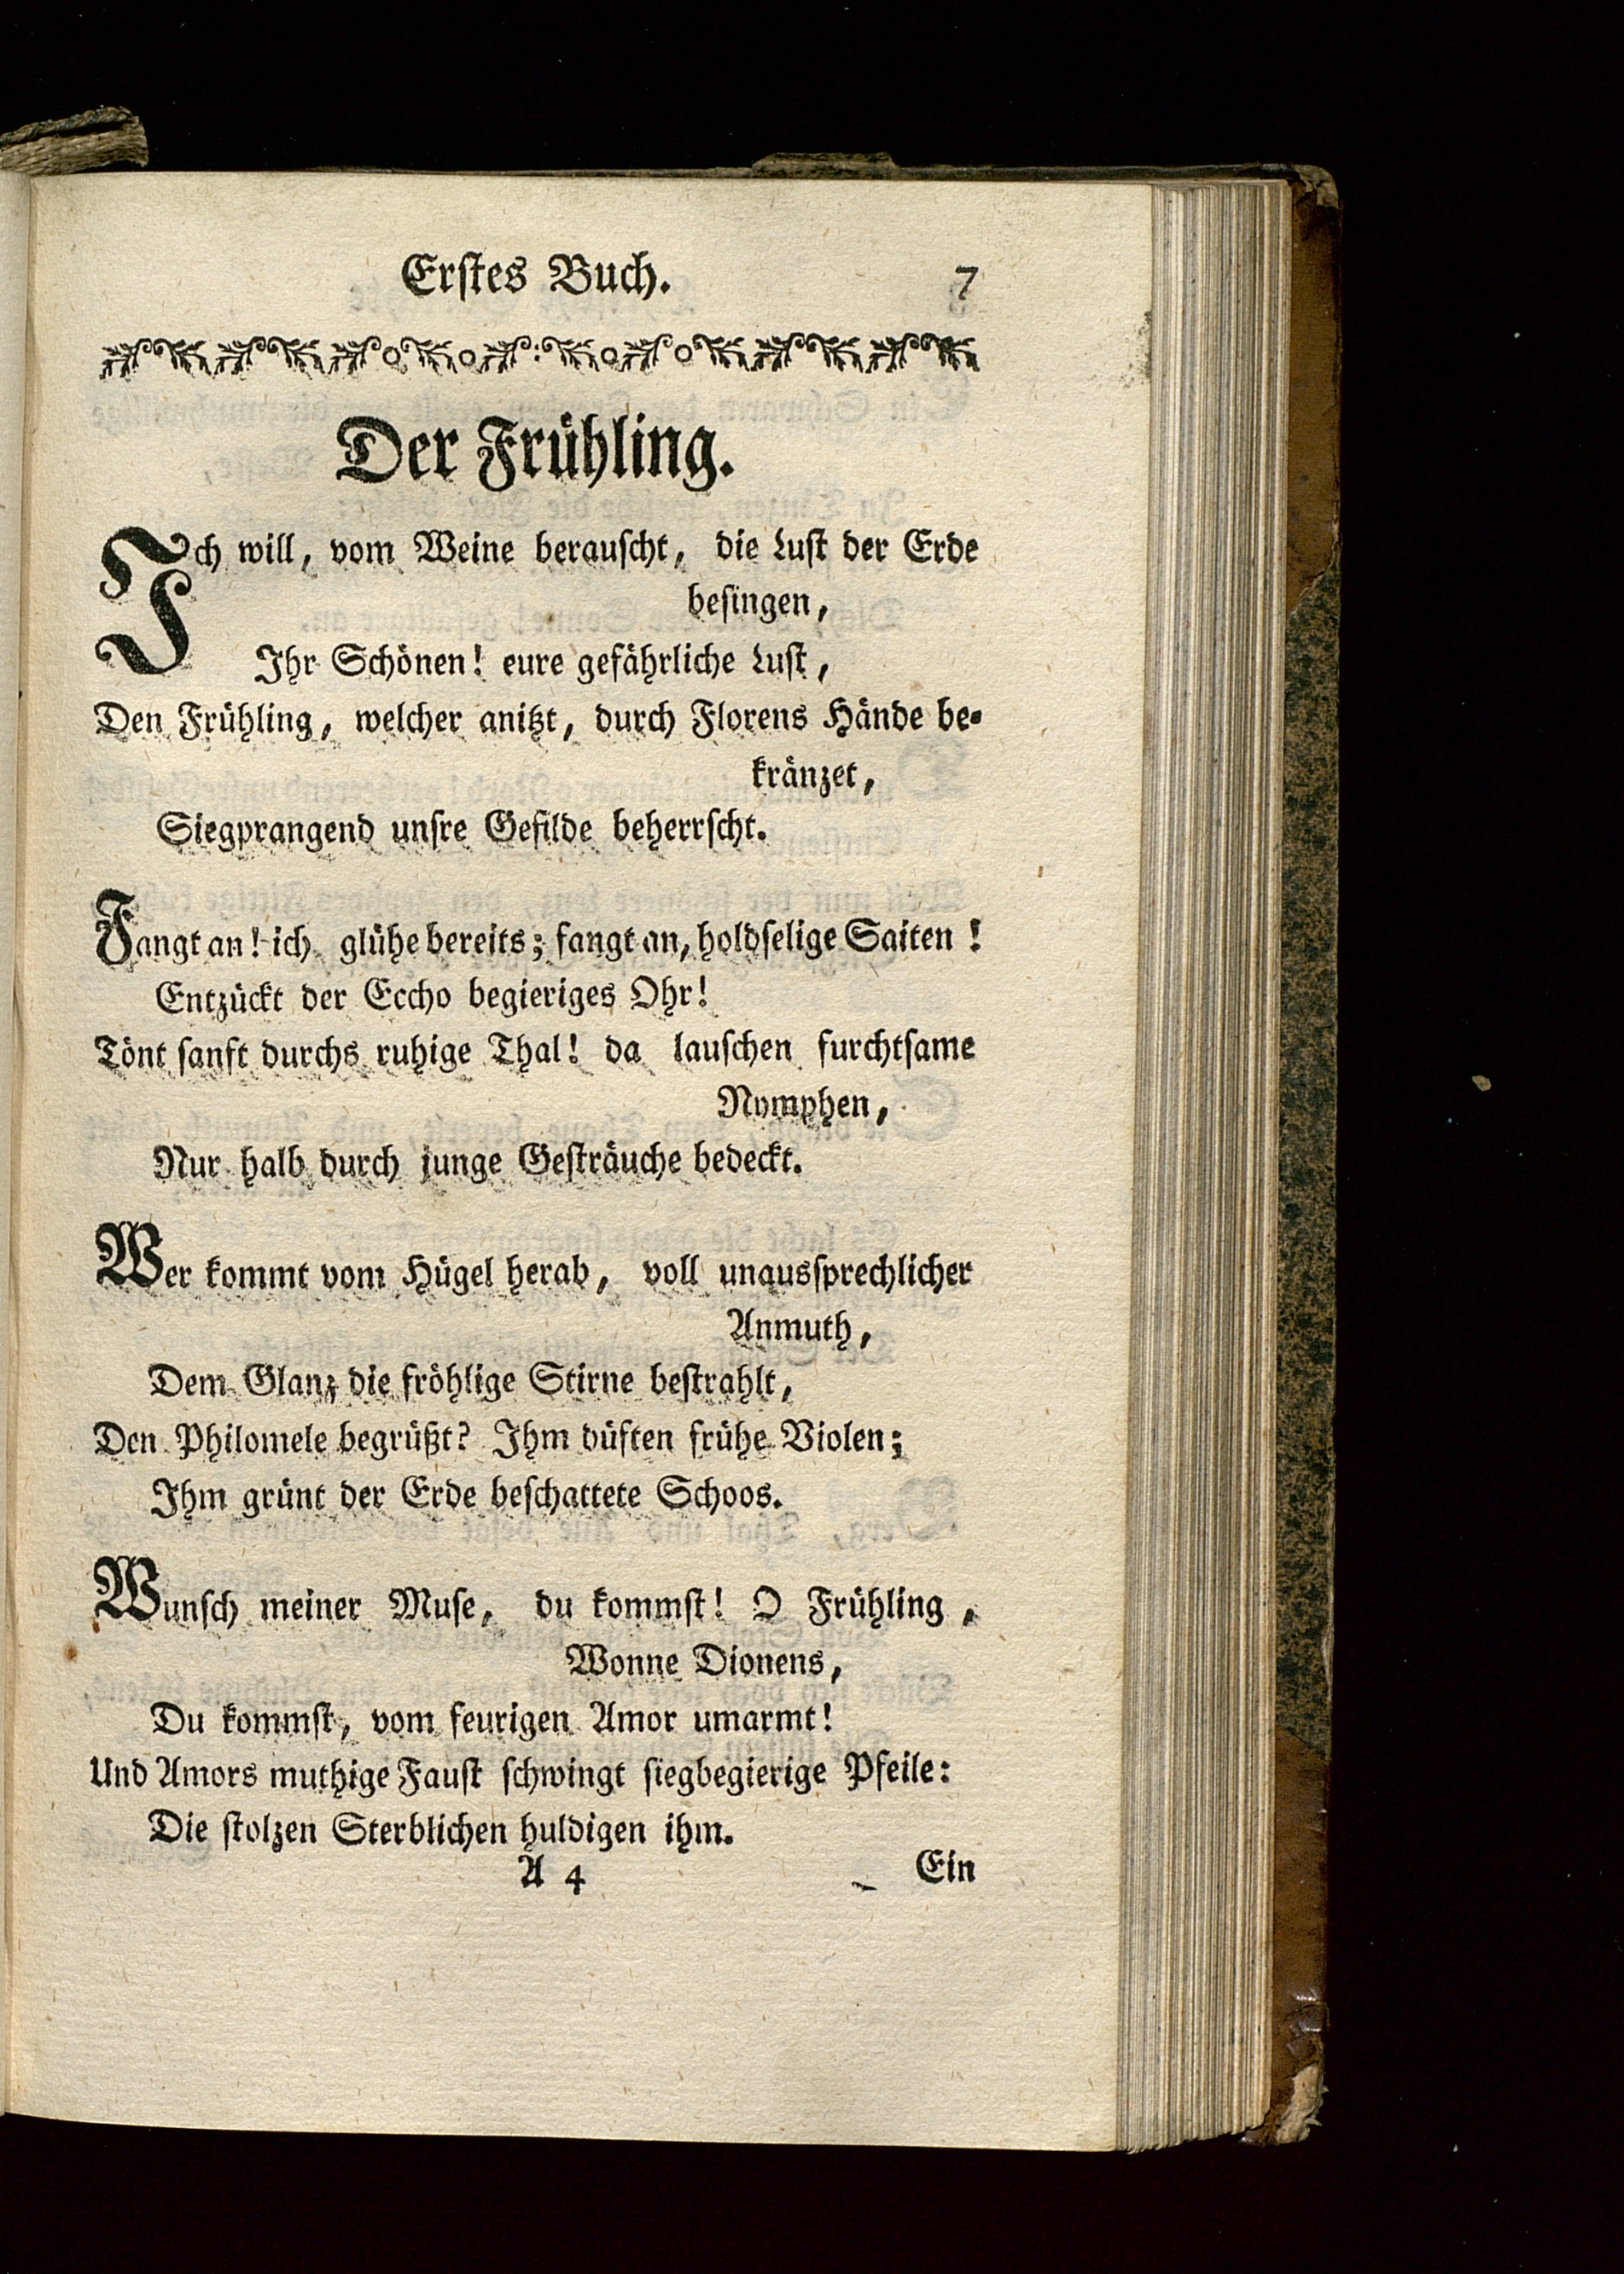 Erstes Buch. 7
Der Frühling.
Ich will, vom Weine berauscht, die Lust der Erde
besingen,
Ihr Schönen! eure gefährliche Lust,
Den Frühling, welcher anitzt, durch Florens Hände be-
kränzet,
Siegprangend unsre Gefilde beherrscht.
Fangt an! ich glühe bereits; fangt an, holdselige Saiten!
Entzückt der Eccho begieriges Ohr!
Tönt sanft durchs ruhige Thal! da lauschen furchtsame
Nymphen,
Nur halb durch junge Gesträuche bedeckt.
Wer kommt vom Hügel herab, voll unaussprechlicher
Anmuth,
Dem Glanz die fröhlige Stirne bestrahlt,
Den Philomele begrüßt? Ihm düften frühe Violen;
Ihm grünt der Erde beschattete Schoos.
Wunsch meiner Muse, du kommst! O Frühling,
Wonne Dionens,
Du kommst, vom feurigen Amor umarmt!
Und Amors muthige Faust schwingt siegbegierige Pfeile:
Die stolzen Sterblichen huldigen ihm.
A 4 Ein